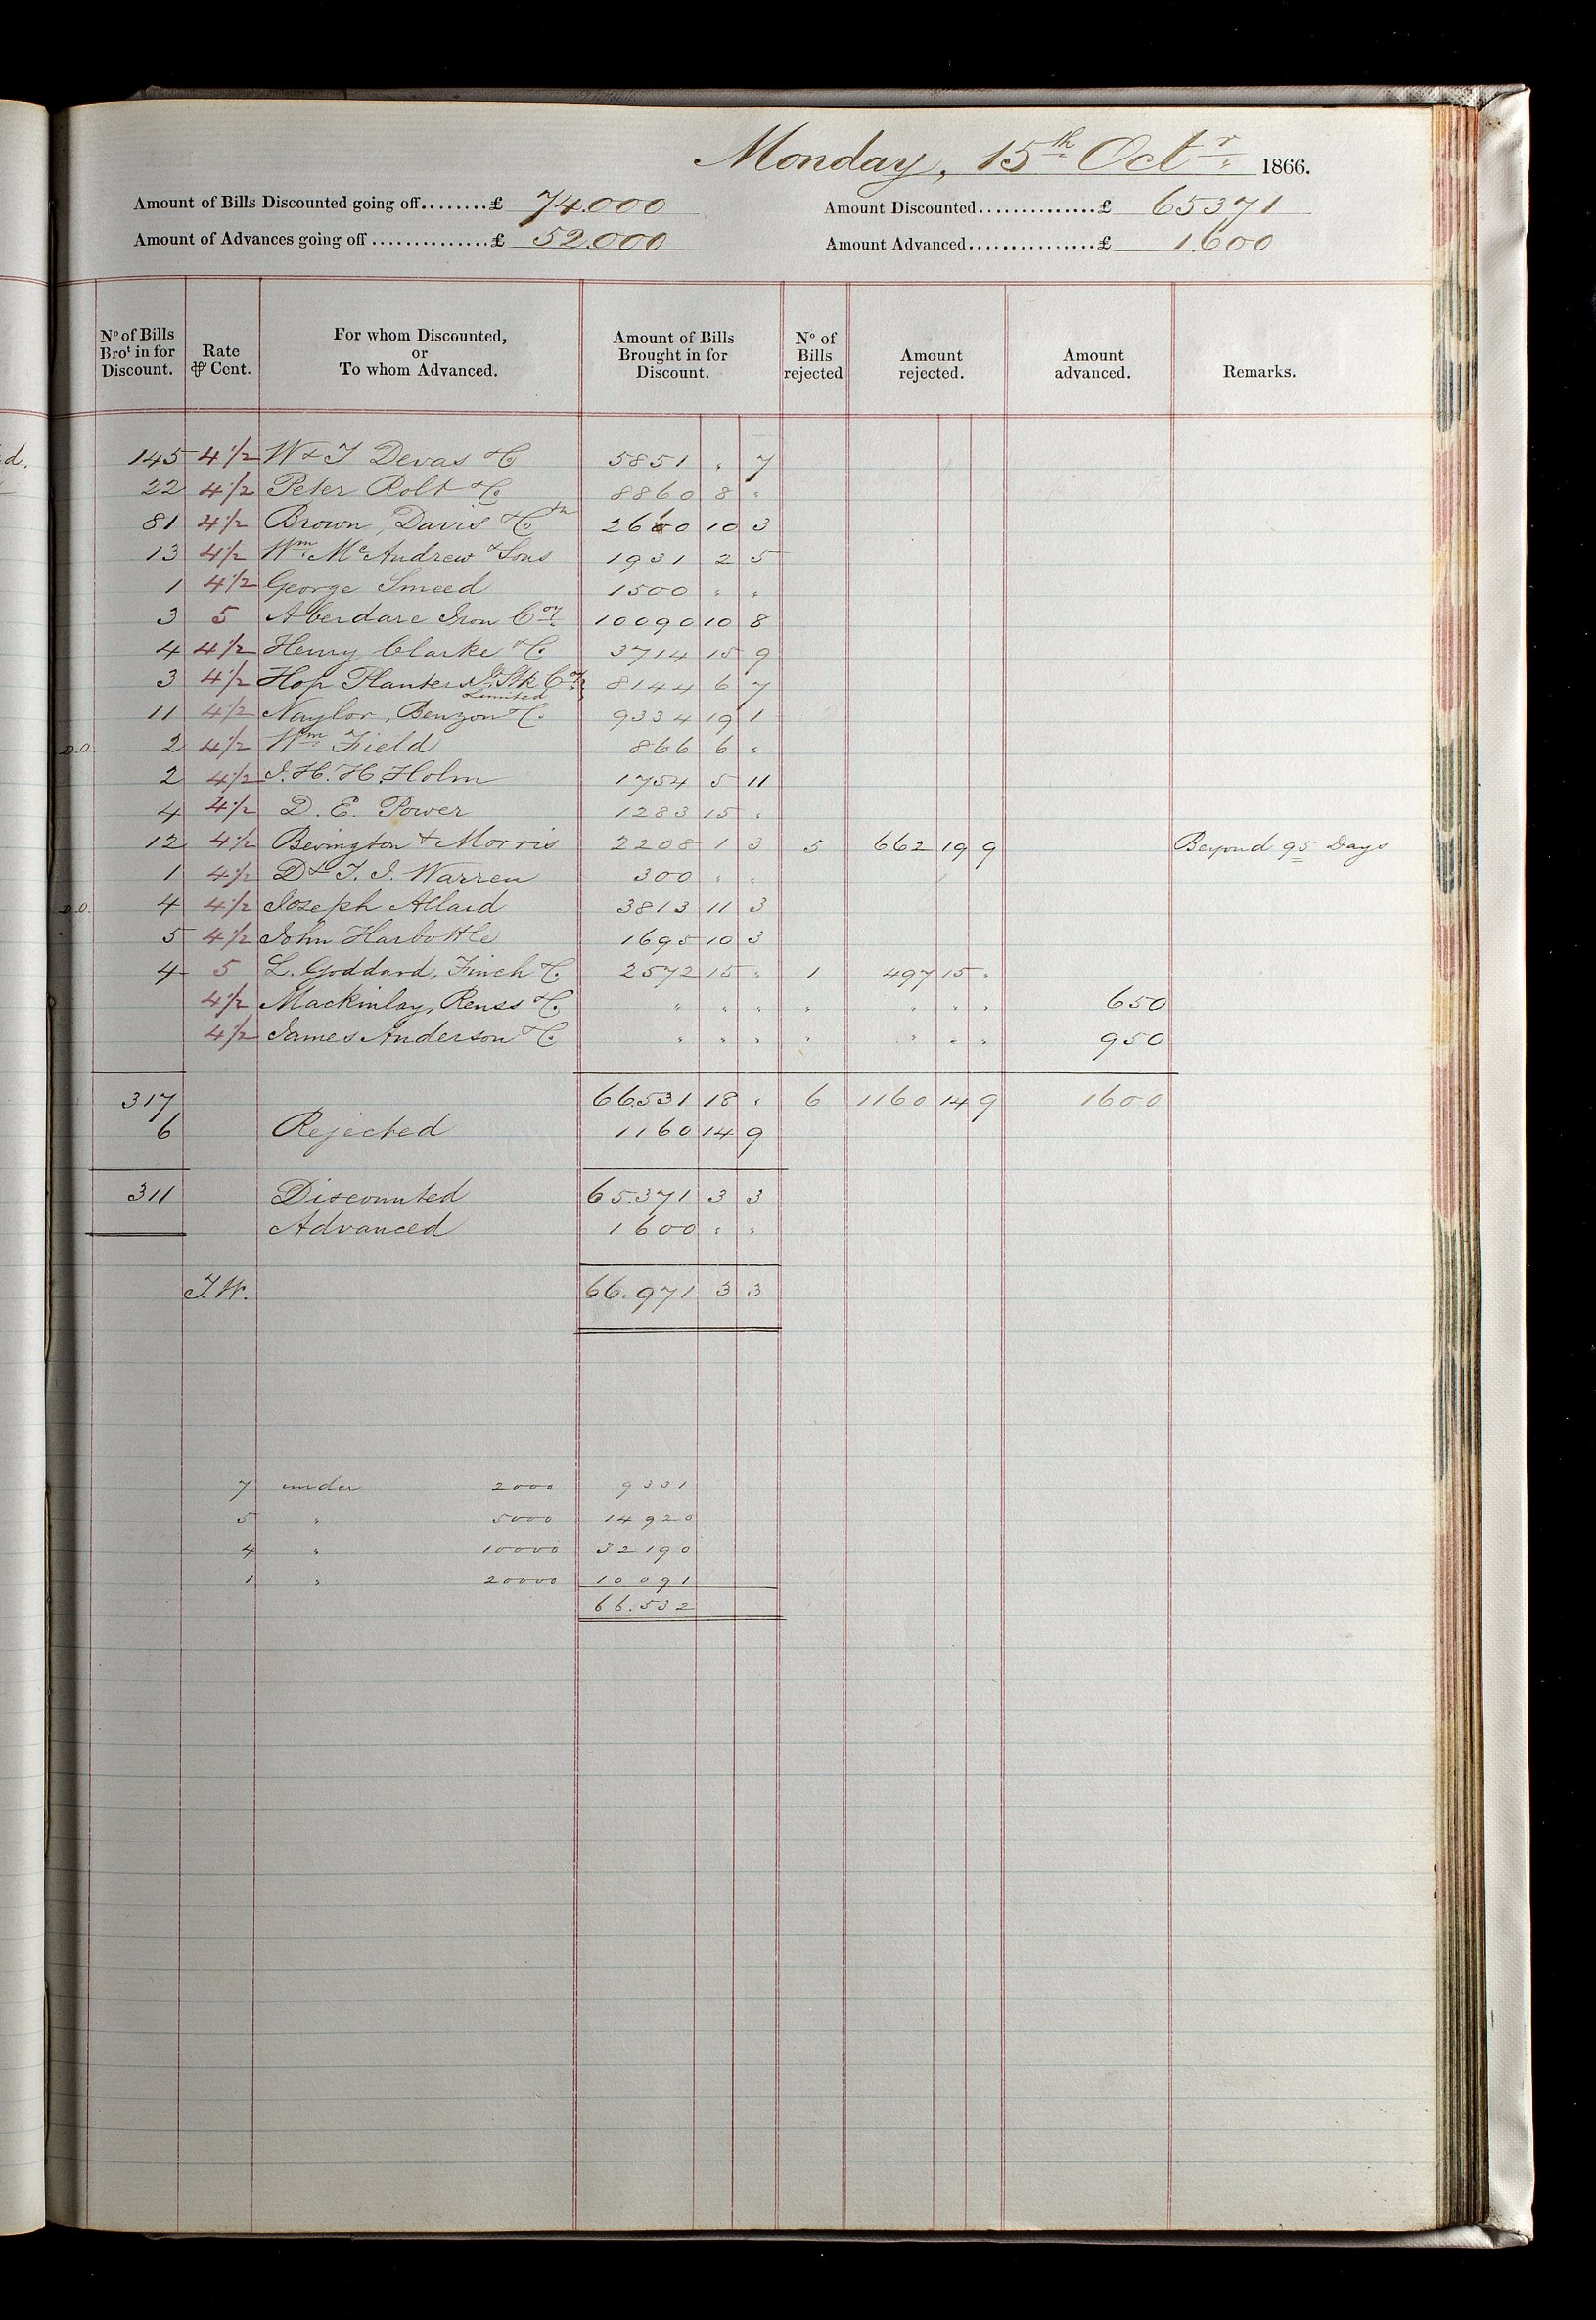 Monday, 15th Octr 1866.
Amount of Bills Discounted going off........£ 74.000 Amount Discounted..............£ 65371
Amount of Advances going off...............£ 52.000 Amount Advanced................£ 1.600
No of Bills Brot in for Discount. Rate ⅌ Cent. For whom Discounted, or To whom Advanced. Amount of Bills Brought in for Discount. No of Bills rejected Amount rejected. Amount advanced. Remarks.
d. 145 4 1/2 W & T Devas & Co 5851 " 7
22 4 1/2 Peter Rolt & Co. 8860 8 "
81 4 1/2 Brown, Davis & Co 2600 10 3
13 4 1/2 Wm McAndrew & Sons 1931 2 5
1 4 1/2 George Smeed 1500 " "
3 5 Aberdare Iron Coy 10090 10 8
4 4 1/2 Henry Clarke & Co. 3714 15 9
3 4 1/2 Hop Planters Jt Stk Coy Limited 8144 6 7
11 4 1/2 Naylor, Benzon & Co. 9334 19 1
D.O. 2 4 1/2 Wm Field 866 6 "
2 4 1/2 J. H. H. Holm 1754 5 11
4 4 1/2 D. E. Power 1283 15 "
12 4 1/2 Bevington & Morris 2208 1 3 5 662 19 9 Beyond 95 Days
1 4 1/2 D & T. J. Warren 300 " "
D.O. 4 4 1/2 Joseph Allard 3813 11 3
5 4 1/2 John Harbottle 1695 10 3
4 5 L. Goddard, Finch & Co. 2572 15 " 1 497 15 "
4 1/2 Mackinlay, Renss & Co. " " " " " " " 650
4 1/2 James Anderson & Co " " " " " " " 950
317 66.531 18 " 6 1160 14 9 1600
6 Rejected 1160 14 9
311 Discounted 65.371 3 3
Advanced 1600 " "
J.W. 66.971 3 3
7 under 2000 9331
5 " 5000 14920
4 " 10000 32190
1 " 20000 10091
66.532